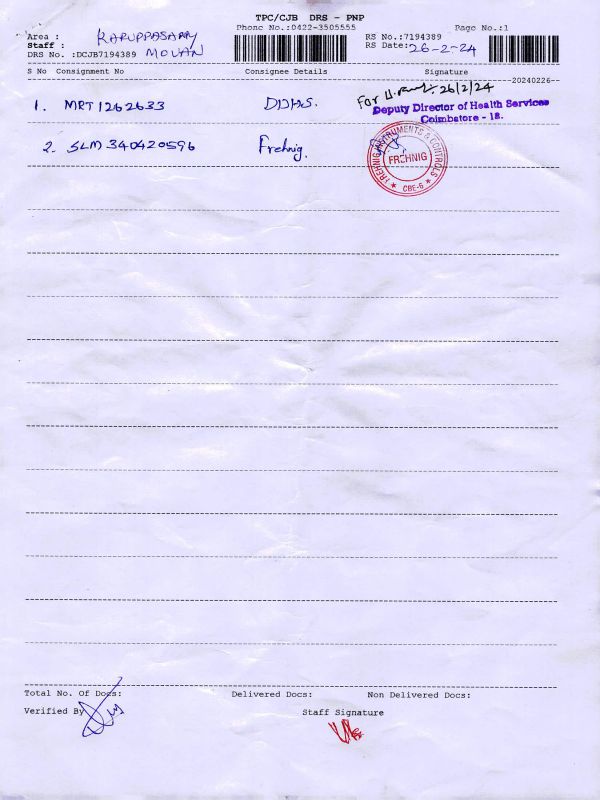 TPC/CJB DRS - PNP
Phone No.:0422-3505555 Page No.:1
Area : KARUPPASAMY RS No.:7194389
Staff : MOHAN RS Date: 26-2-24
DRS No. :DCJB7194389
S No Consignment No Consignee Details Signature
--20240226--
1. MRT1262633 DDHS. For 26/2/24
Deputy Director of Health Services
Coimbatore - 18.
2. SLM340420596 Frehnig.
FREHNIG INSTRUMENTS & CONTROLS
FREHNIG
★ CBE-6 ★
Total No. Of Docs: Delivered Docs: Non Delivered Docs:
Verified By Staff Signature